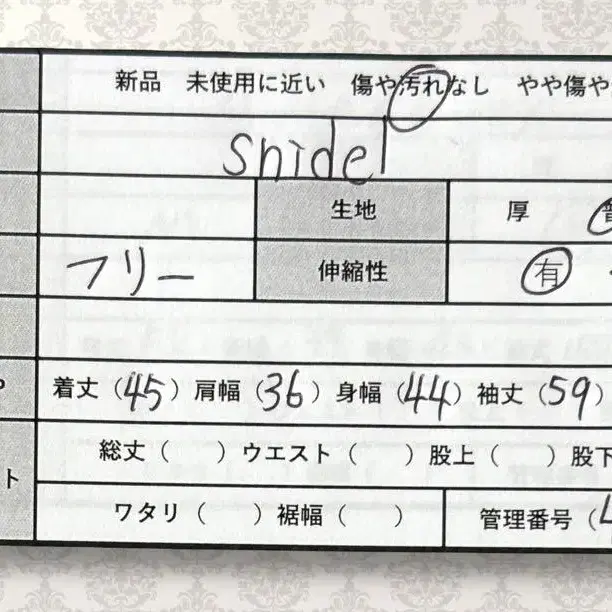 新品 未使用に近い 傷や汚れなし やや傷や
snidel
生地 厚
フリー 伸縮性 有
着丈（45）肩幅（36）身幅（44）袖丈（59）
総丈（ ）ウエスト（ ）股上（ ）股下
ト
ワタリ（ ）裾幅（ ） 管理番号（4